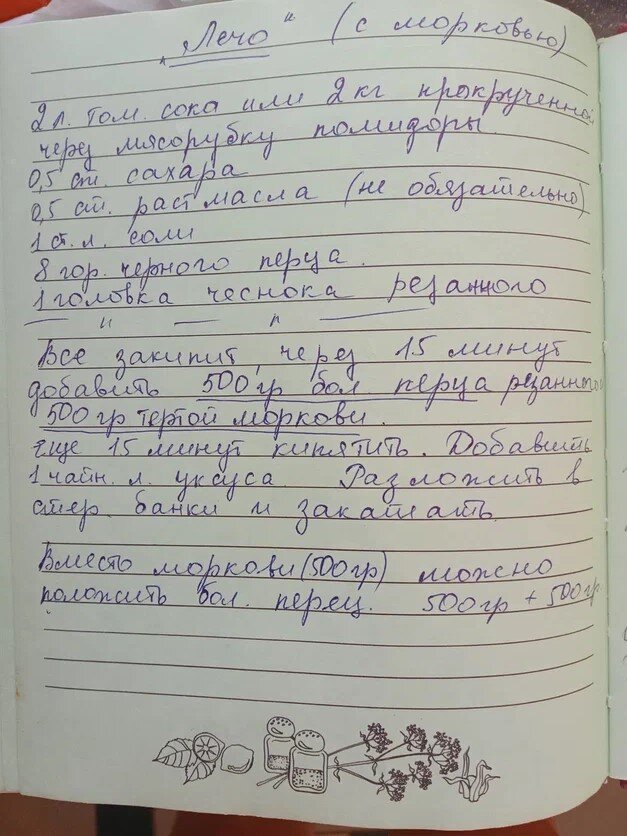 „Лечо" (с морковью)
2 л. том. сока или 2 кг прокрученной
через мясорубку помидоры.
0,5 ст. сахара
0,5 ст. раст масла (не обязательно)
1 ст. л. соли
8 гор. черного перца.
1 головка чеснока резанного
— " — " —
Все закипит, через 15 минут
добавить 500 гр бол. перца резанного
500 гр тертой моркови.
Еще 15 минут кипятить. Добавить
1 чайн. л. уксуса. Разложить в
стер. банки и закатать.
Вместо моркови (500 гр) можно
положить бол. перец. 500 гр + 500 гр